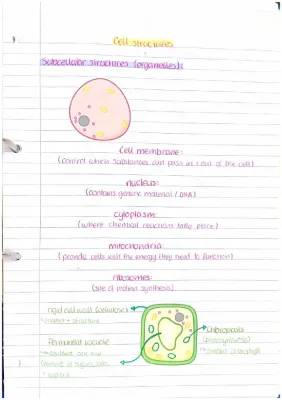 Cell structures
Subcellular structures (organelles):
Cell membrane:
(control which substances can pass in & out of the cell)
nucleus:
(contains genetic material / DNA)
cytoplasm:
(where chemical reactions take place)
mitochondria:
(provide cells with the energy they need to function)
ribosomes:
(site of protein synthesis)
rigid cell wall (cellulose)
Permanent vacuole
chloroplasts
(photosynthesis)